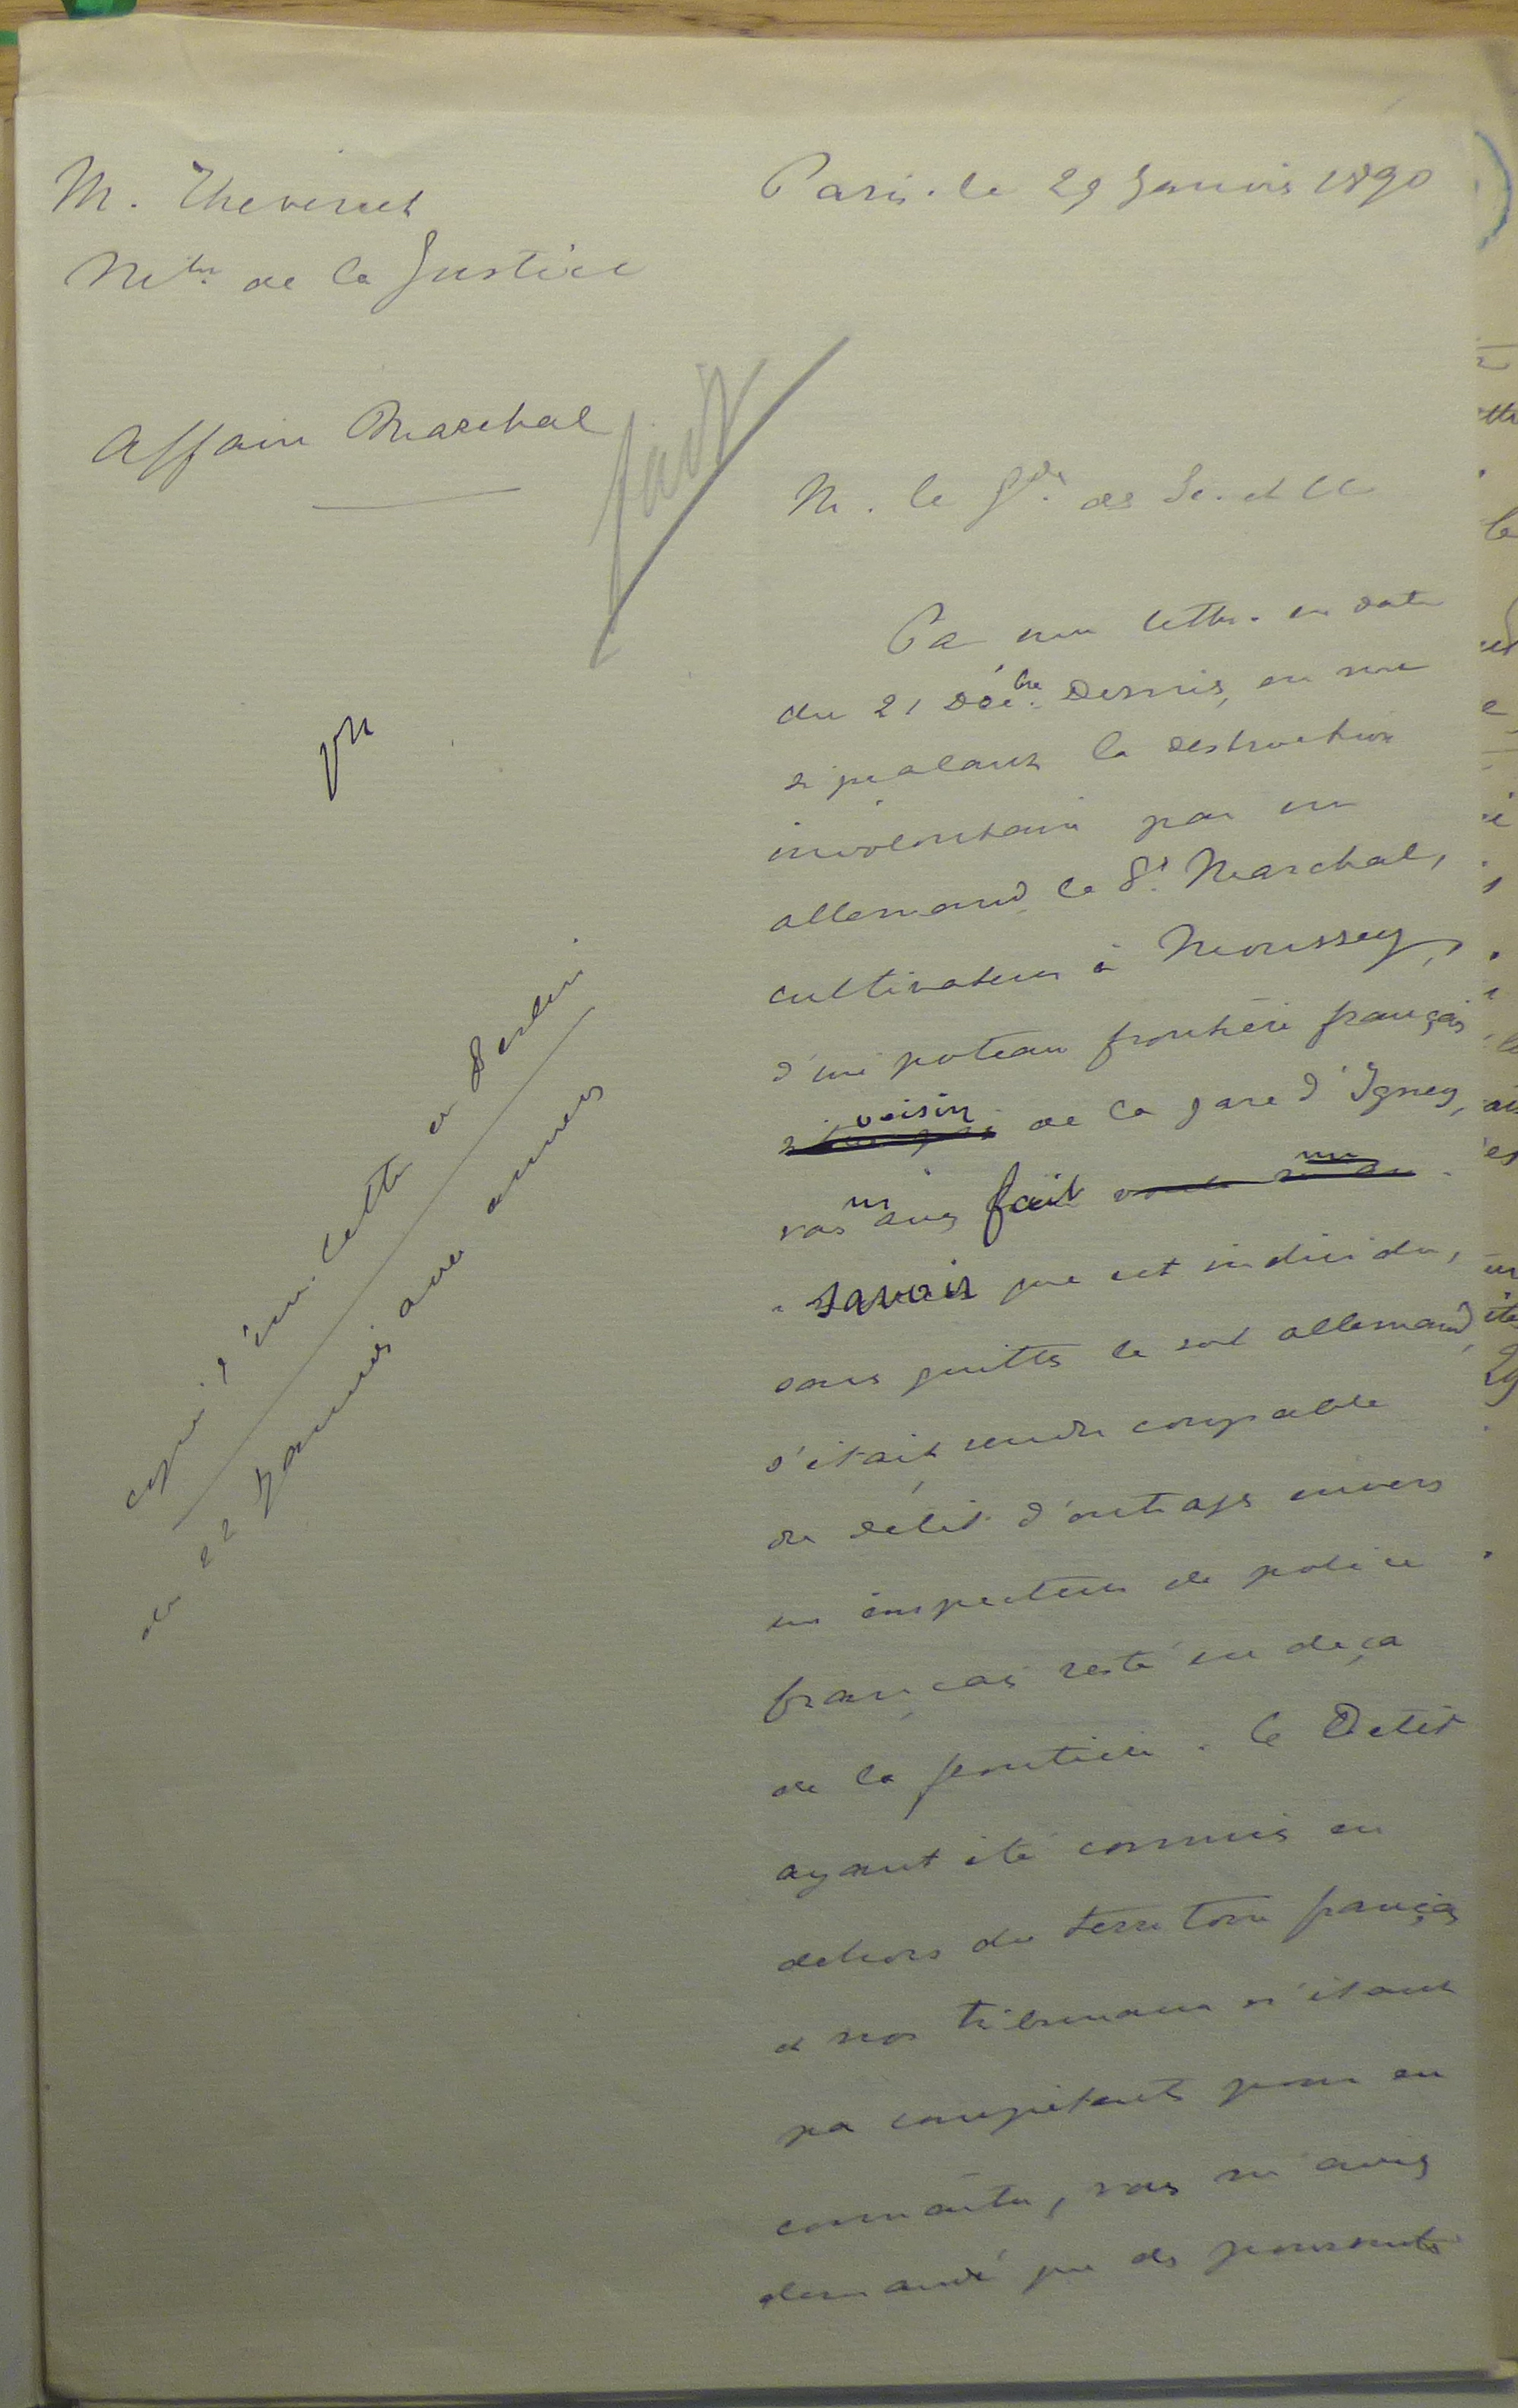 M. Thevenet
Mtre de la Justice
Affaire Marchal
fait
Paris. le 29 Janvier 1890
M. le Gde des Sc. et Cc
Par une lettre en date
du 21 Décbre dernier, en me
signalant la destruction
involontaire par un
allemand le Sr. Marchal,
cultivateur à Moussey,
d'un poteau frontière français
voisin de la gare d'Igney,
vous m'avez fait
savoir que cet individu,
sans quitter le sol allemand,
s'était rendu coupable
de délit d'outrage envers
un inspecteur de police
français resté en deça
de la frontière. Ce Délit
ayant été commis en
dehors du territoire français
et nos tribunaux n'étant
pas compétents pour en
connaître, vous m'avez
demandé que des poursuites
copie d'une lettre de Berlin
du 22 Janvier avec annexes